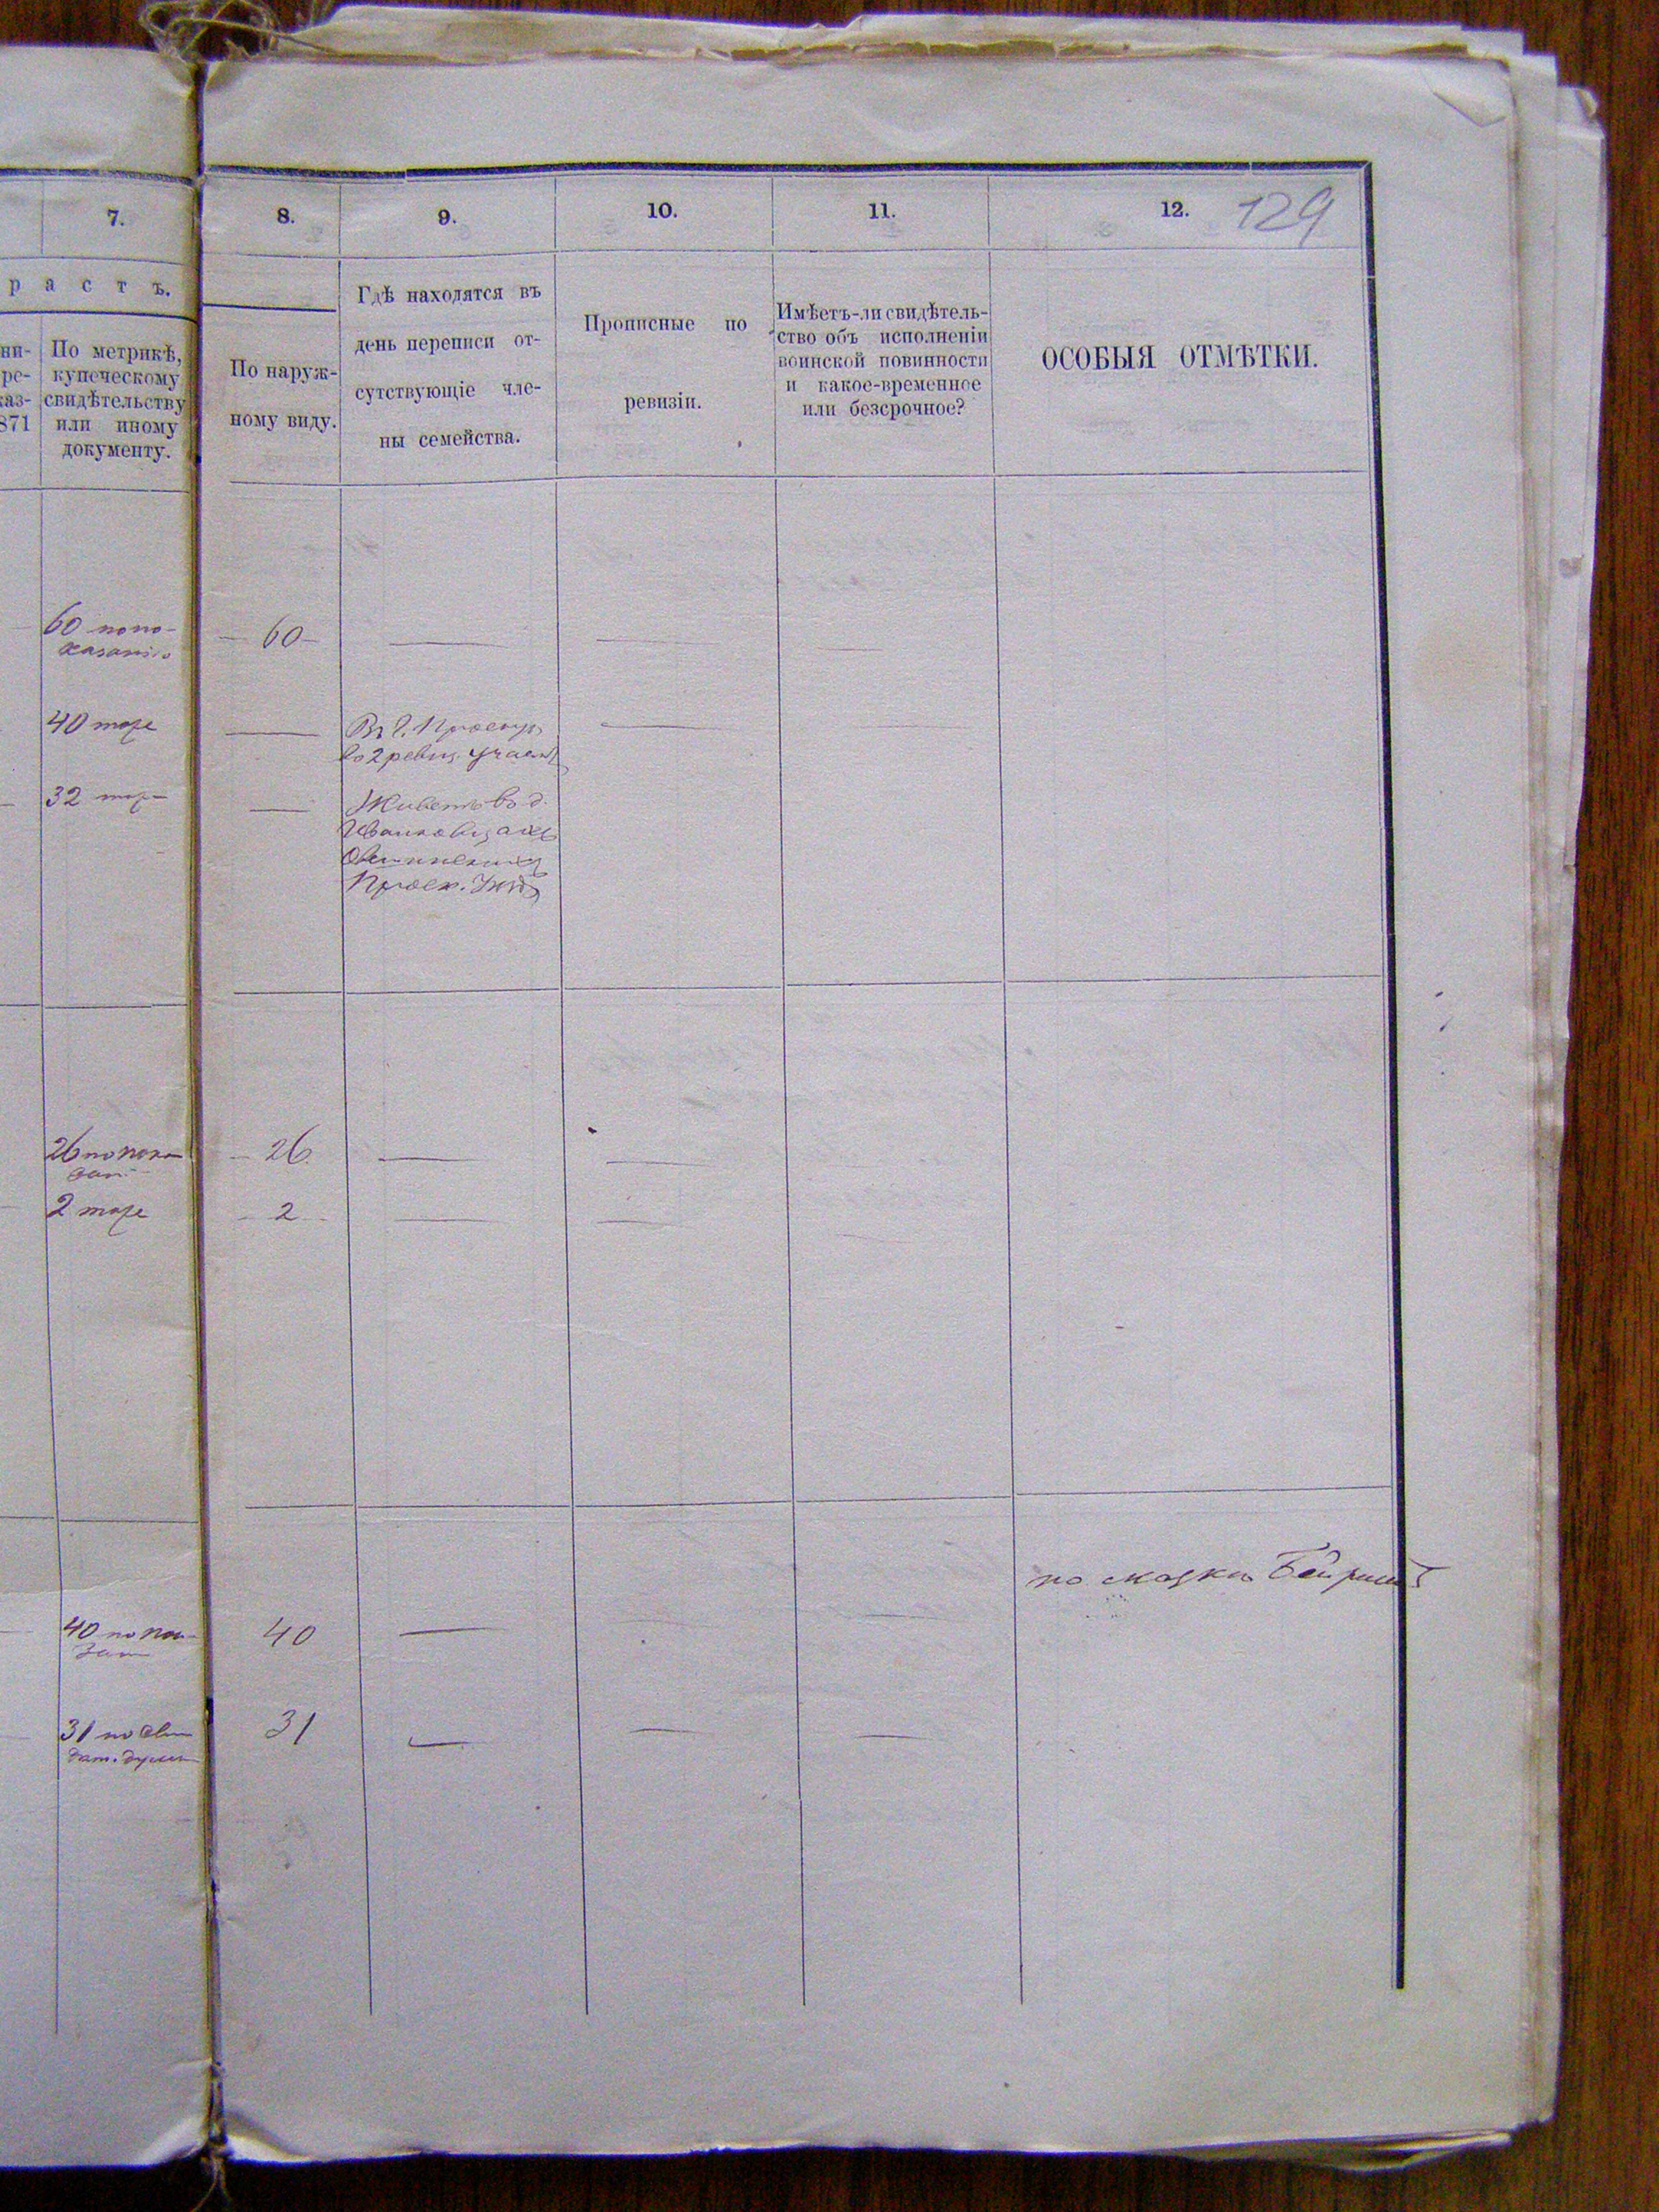 7.
8.
9.
10.
11.
12.
129
р а с т ъ.
ни-
ре-
каз-
871
По метрикѣ,
купеческому
свидѣтельству
или иному
документу.
По наруж-
ному виду.
Гдѣ находятся въ
день переписи от-
сутствующіе чле-
ны семейства.
Прописные по
ревизіи.
Имѣетъ-ли свидѣтель-
ство объ исполненіи
воинской повинности
и какое-временное
или безсрочное?
ОСОБЫЯ ОТМѢТКИ.
60 по по-
казанію
60
40 тоже
Въ г. Проскур
во 2 ревиз. участ
32 тоже
Живетъ во д.
Проск. Уѣзд
26 по пока
зан
26
2 тоже
2
по сказкѣ
40 по пок
зан
40
31 по
31